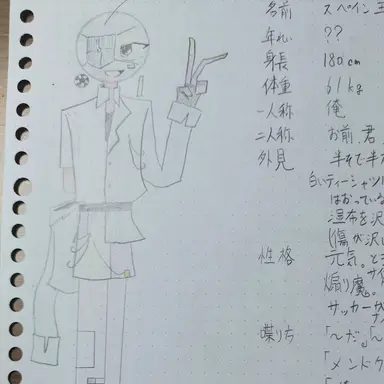 名前 スペイン王
年れい ??
身長 180cm
体重 61kg
一人称 俺
二人称 お前、君、
外見 半そで半ズ
白いティーシャツに
はおっている
湿布を沢
傷が沢
性格 元気。と
煽り魔。
サッカーが
喋り方 「〜だ。」「〜
「メンドク